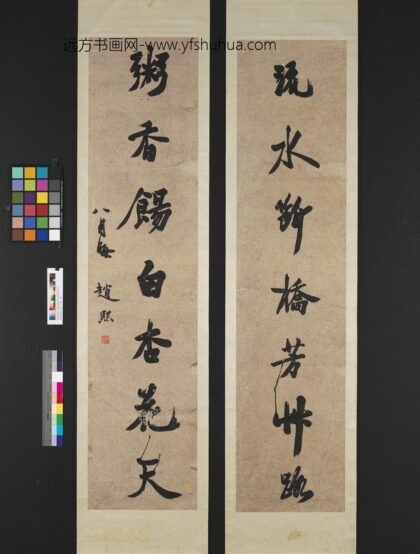 远方书画网-www.yfshuhua.com
流水斷橋芳艸路
粥香餳白杏花天
八月 趙熙